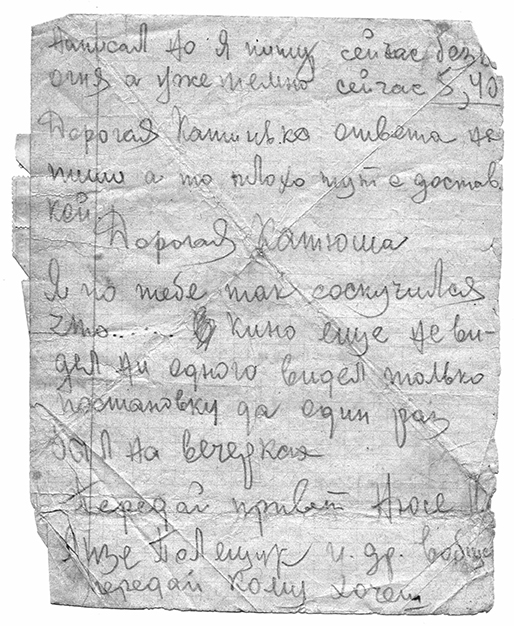 написал но я пишу сейчас без
огня а уже темно сейчас 5,40
Дорогая Катинько ответа не
пиши а то плохо тут с достав
кой.
Дорогая Катюша
Я по тебе так соскучился
что...... В кино еще не ви-
дел ни одного видел только
постановку да один раз
был на вечерках
Передай привет Нюсе
Полещук и. др. вобще
передай кому хочеш